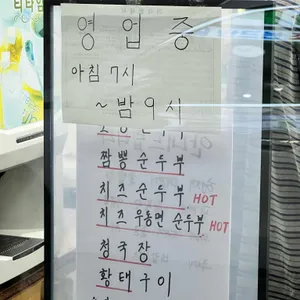 영업중
아침 7시
~ 밤 9시
짬뽕순두부
치즈순두부 HOT
치즈우동면순두부 HOT
청국장
황태구이